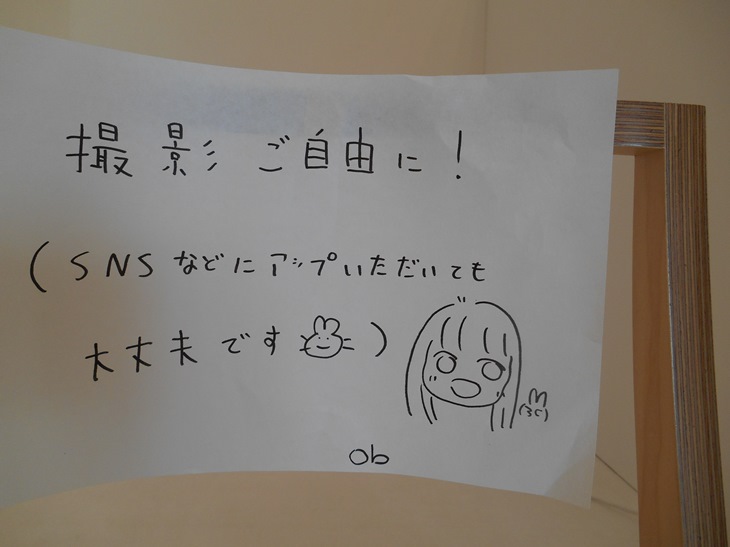 撮影ご自由に!
(SNSなどにアップいただいても
大丈夫です)
ob